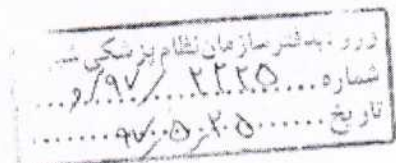 ورود بدفتر سازمان نظام پزشکی شد
شماره ۲۲۲۵/۹۷/و
تاریخ ۹۷،۵،۲۵